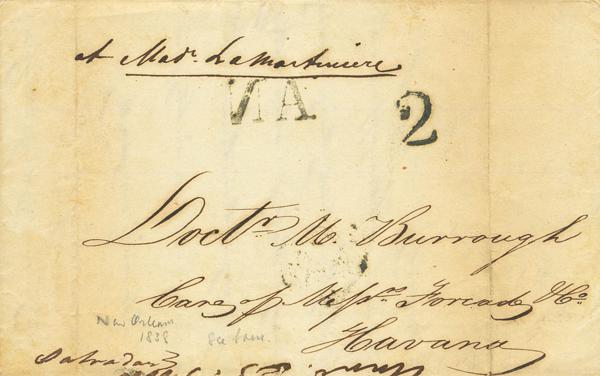 at Madr. LaMartiniere
NA
2
Doctr. M. Burrough
Care of Messrs. Forcade & Co.
Havana
New Orleans
1838
See